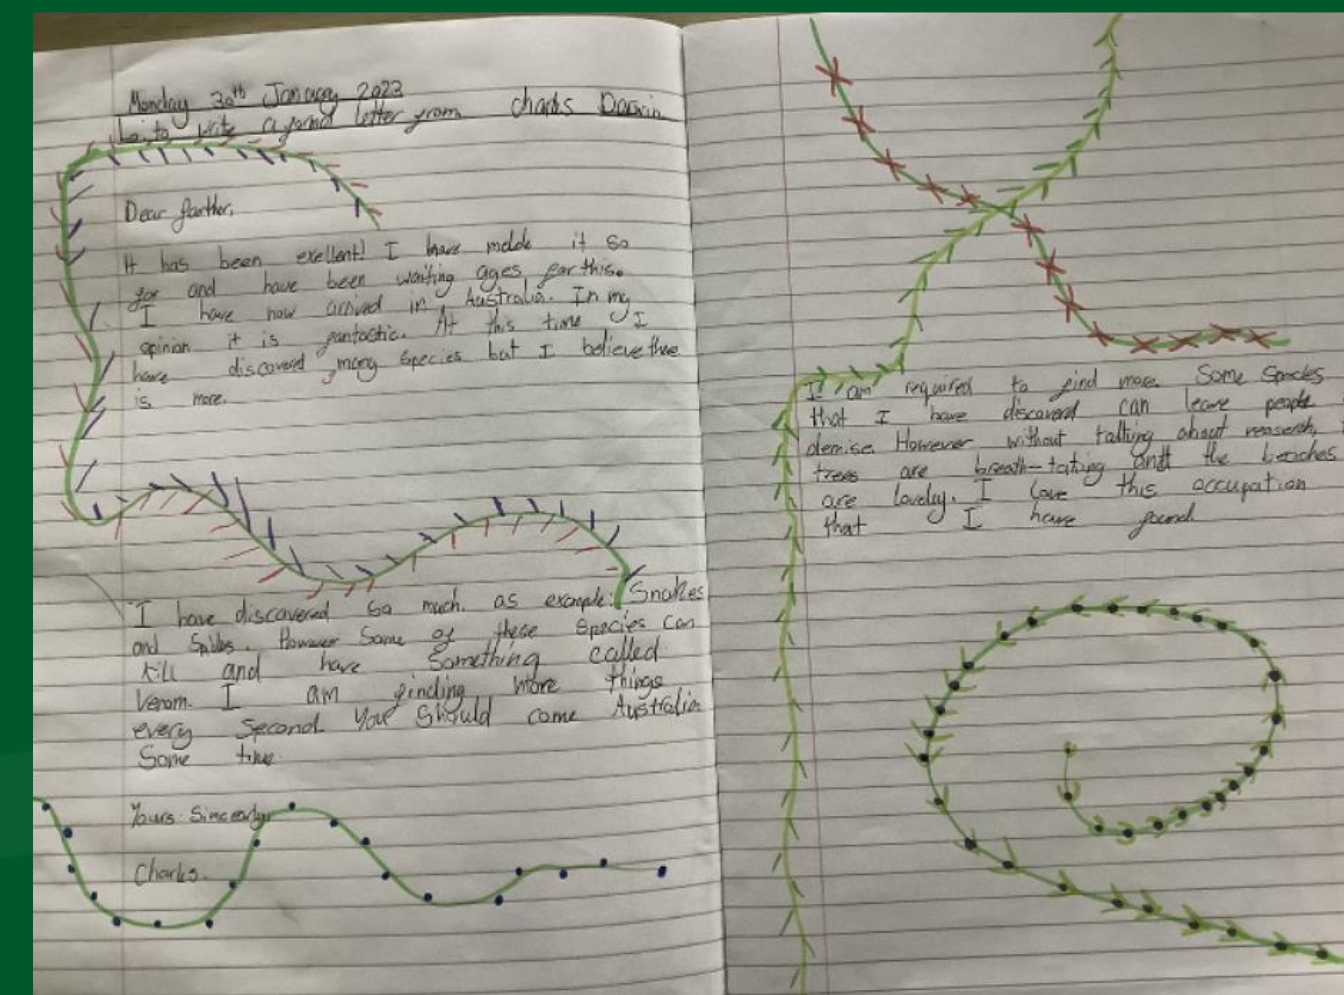 Monday 30th January 2023
L.i. to write a formal letter from Charls Darwin
Dear farther,
It has been exellent! I have made it so
far and have been waiting ages for this.
I have now arrived in Australia. In my
opinion it is fantastic. At this time I
have discovered many species but I believe there
is more.
I have discovered so much. as example: Snakes
and However Some of these Species can
kill and have Something called
Venom. I am finding more things
every second. You Should come Australia
Some time
Yours Sincearly
Charls.
I am required to find more. Some Species
that I have discoverd can leave people
demise. However without talking about
trees are breath-taking and the beaches
are lovely. I love this occupation
that I have found.